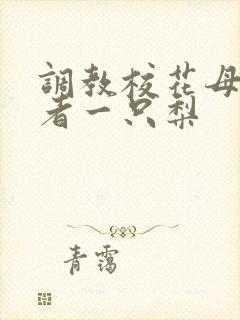 調教校花母
者一只梨
青霭